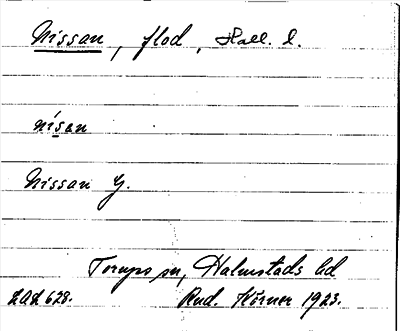 Nissan, flod, Hall. l.
nísan
Nissan G.
Torups sn, Halmstads hd
LAL 628. Rud. Körner 1923.